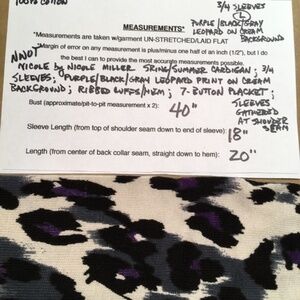 100% COTTON
3/4 SLEEVES
L
PURPLE/BLACK/GRAY
LEOPARD ON CREAM
BACKGROUND
MEASUREMENTS:
*Measurements are taken w/garment UN-STRETCHED/LAID FLAT
NWOT
*Margin of error on any measurement is plus/minus one half of an inch (1/2"), but I do
the best I can to provide the most accurate measurements possible.
NICOLE by NICOLE MILLER SPRING/SUMMER CARDIGAN; 3/4
SLEEVES; PURPLE/BLACK/GRAY LEOPARD PRINT ON CREAM
BACKGROUND; RIBBED CUFFS/HEM; 7-BUTTON PLACKET;
SLEEVES
GATHERED
AT SHOULDER
SEAM
Bust (approximate/pit-to-pit measurement x 2): 40"
Sleeve Length (from top of shoulder seam down to end of sleeve): 18"
Length (from center of back collar seam, straight down to hem): 20"